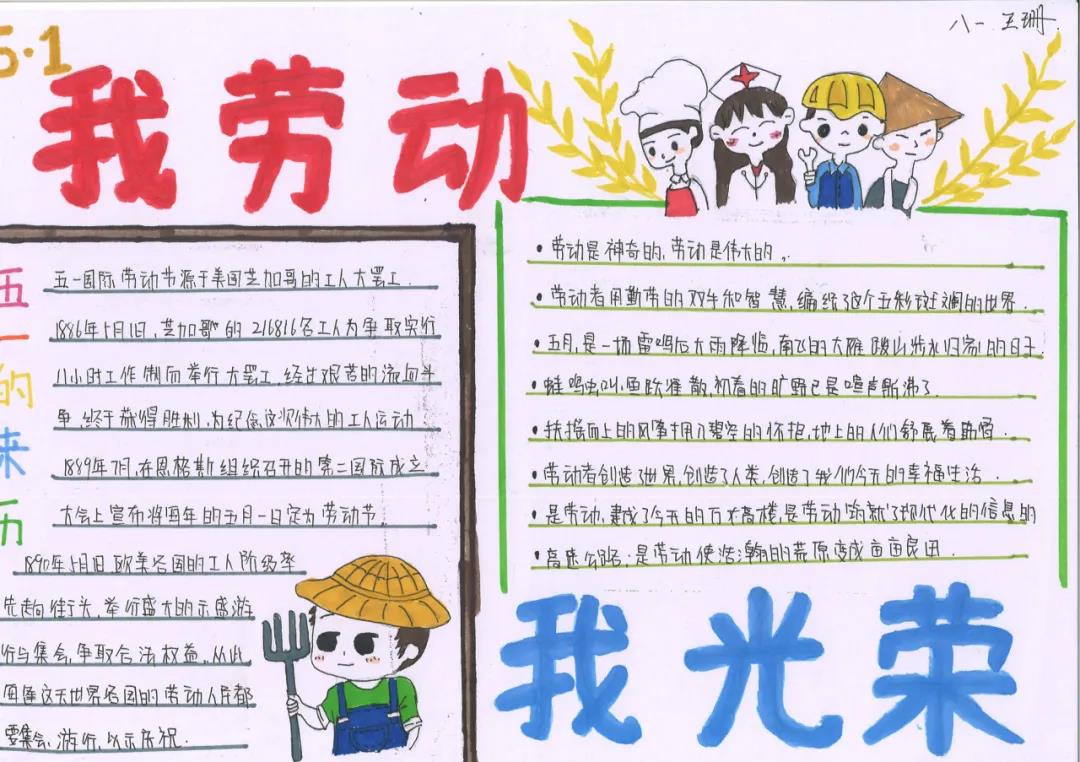 5·1
八一 王珊
我劳动
五一的来历
五一国际劳动节源于美国芝加哥的工人大罢工.
1886年5月1日,芝加哥的216816名工人为争取实行
八小时工作制而举行大罢工,经过艰苦的流血斗
争,终于获得胜利,为纪念这次伟大的工人运动
1889年7月,在恩格斯组织召开的第二国际成立
大会上宣布将每年的五月一日定为劳动节。
1890年5月1日欧美各国的工人阶级率
先走向街头,举行盛大的示威游
行与集会,争取合法权益。从此
每逢这天世界各国的劳动人民都
要集会、游行,以示庆祝.
•劳动是神奇的,劳动是伟大的。
•劳动者用勤劳的双手和智慧,编织了这个五彩斑斓的世界.
•五月,是一场雷鸣后大雨降临,南飞的大雁踱山涉水归家的日子
•蛙鸣虫叫,鱼跃雀散,初春的旷野已是喧声鼎沸了.
•扶摇而上的风筝拥入碧空的怀抱,地上的人们舒展着筋骨.
•劳动者创造了世界,创造了人类,创造了我们今天的幸福生活.
•是劳动,建成了今天的万丈高楼,是劳动,筑就了现代化的信息的
•高速公路;是劳动使浩瀚的荒原变成亩亩良田.
我光荣